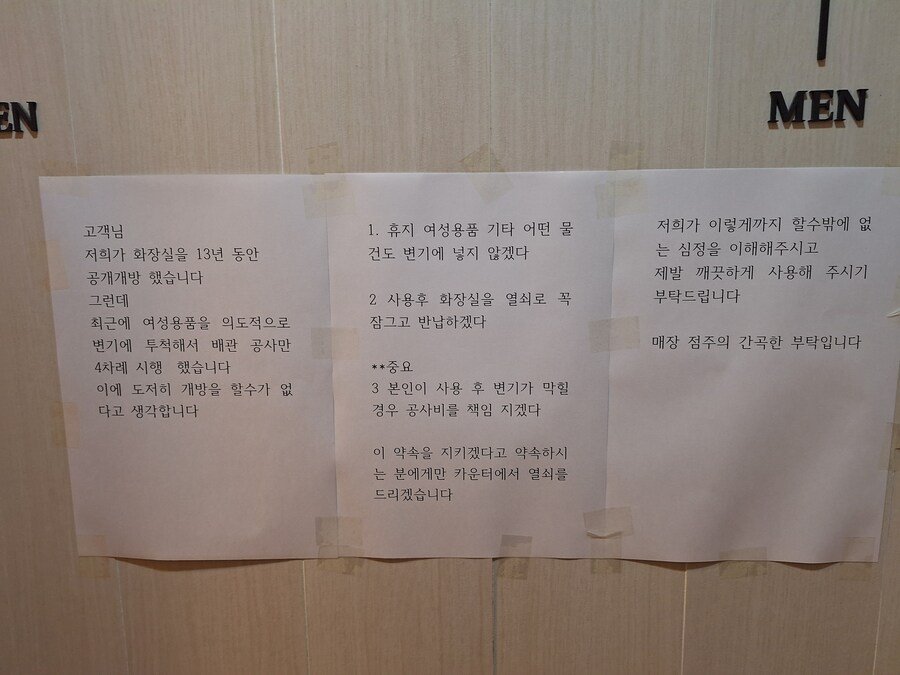 EN
MEN
고객님
저희가 화장실을 13년 동안
공개개방 했습니다
그런데
최근에 여성용품을 의도적으로
변기에 투척해서 배관 공사만
4차례 시행 했습니다
이에 도저히 개방을 할수가 없
다고 생각합니다
1. 휴지 여성용품 기타 어떤 물
건도 변기에 넣지 않겠다
2 사용후 화장실을 열쇠로 꼭
잠그고 반납하겠다
**중요
3 본인이 사용 후 변기가 막힐
경우 공사비를 책임 지겠다
이 약속을 지키겠다고 약속하시
는 분에게만 카운터에서 열쇠를
드리겠습니다
저희가 이렇게까지 할수밖에 없
는 심정을 이해해주시고
제발 깨끗하게 사용해 주시기
부탁드립니다
매장 점주의 간곡한 부탁입니다